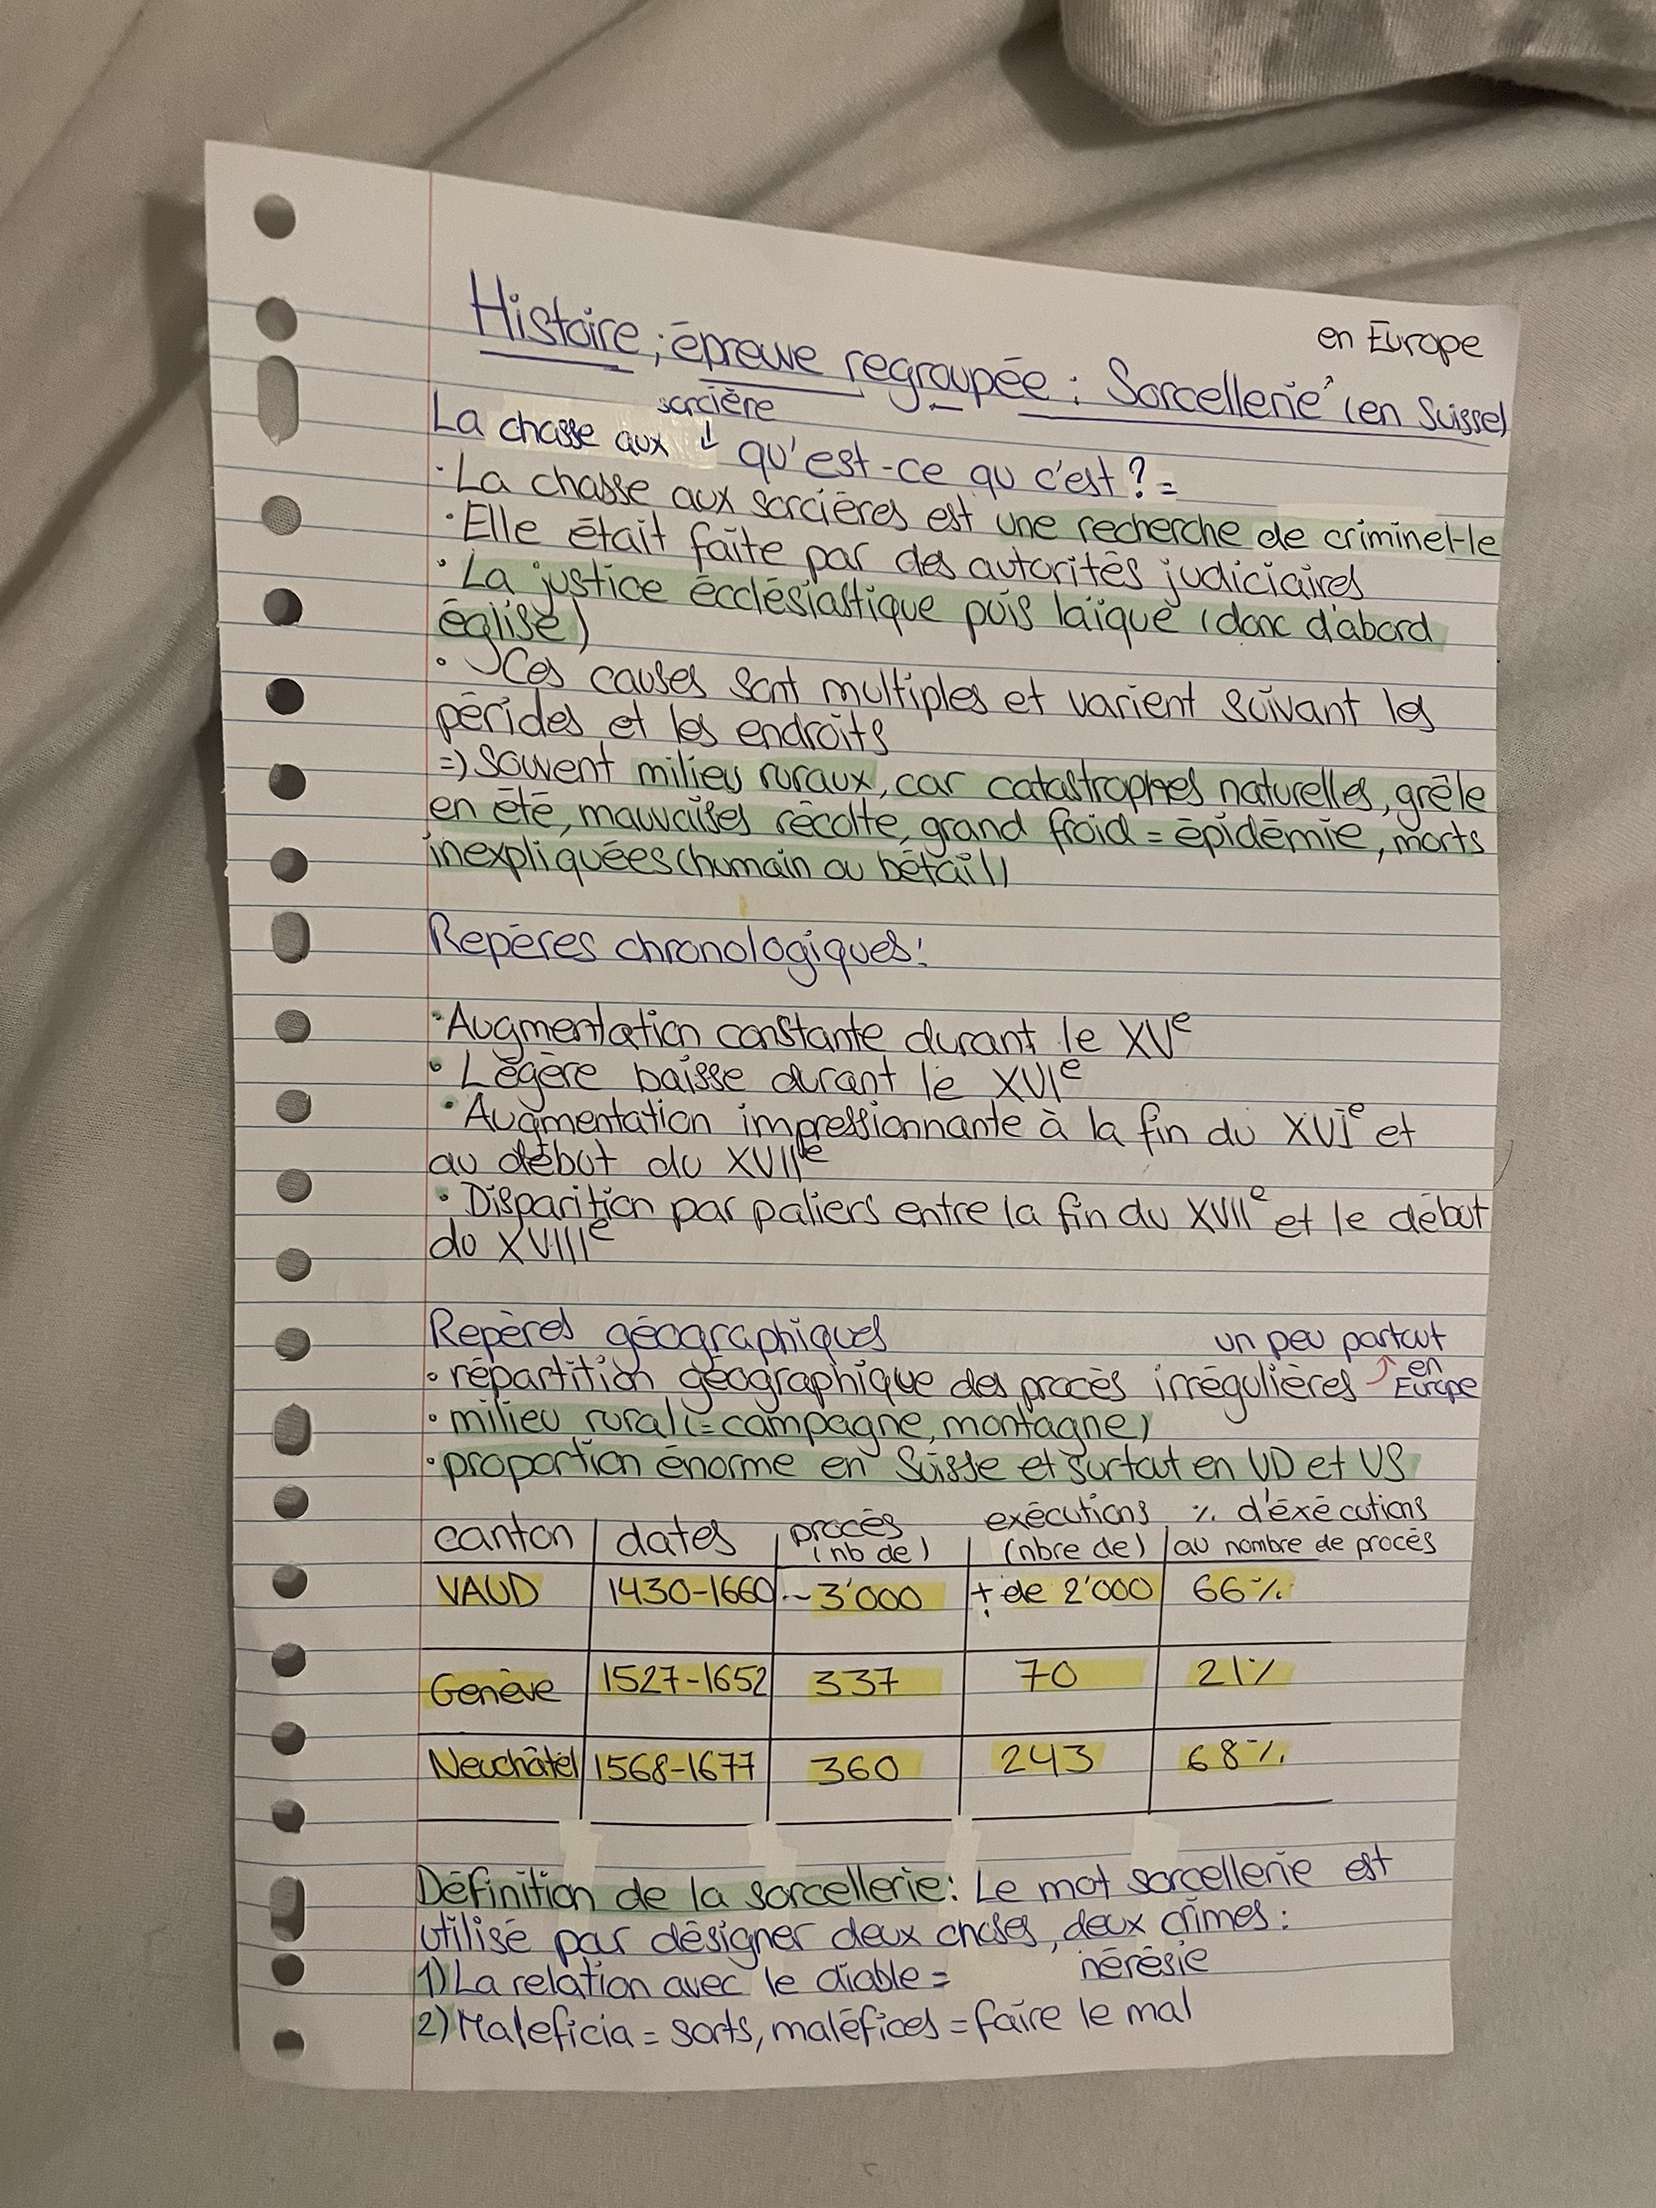 en Europe
Histoire, épreuve regroupée : Sorcellerie (en Suisse)
sorcière
La chasse aux ↓ qu'est-ce qu c'est? =
· La chasse aux sorcières est une recherche de criminel-le
· Elle était faite par des autorités judiciaires
· La justice écclésiastique puis laïque (donc d'abord
église)
· Ces causes sont multiples et varient suivant les
périodes et les endroits
=) Souvent milieu ruraux, car catastrophes naturelles, grêle
en été, mauvaises récolte, grand froid = épidémie, morts
inexpliquées (humain ou bétail)
Repères chronologiques :
· Augmentation constante durant le XVe
· Légère baisse durant le XVIe
· Augmentation impressionnante à la fin du XVIe et
au début du XVIIe
· Disparition par paliers entre la fin du XVIIe et le début
du XVIIIe
Repères géographiques
un peu partout
· répartition géographique des procès irrégulières en Europe
· milieu rural (= campagne, montagne)
· proportion énorme en Suisse et surtout en VD et VS
canton | dates | procès (nb de) | exécutions (nbre de) | % d'éxécutions au nombre de procès
VAUD | 1430-1660 | ~3'000 | + de 2'000 | 66%
Genève | 1527-1652 | 337 | 70 | 21%
Neuchâtel | 1568-1677 | 360 | 243 | 68%
Définition de la sorcellerie : Le mot sorcellerie est
utilisé par désigner deux choses, deux crimes :
1) La relation avec le diable = hérésie
2) Maleficia = sorts, maléfices = faire le mal